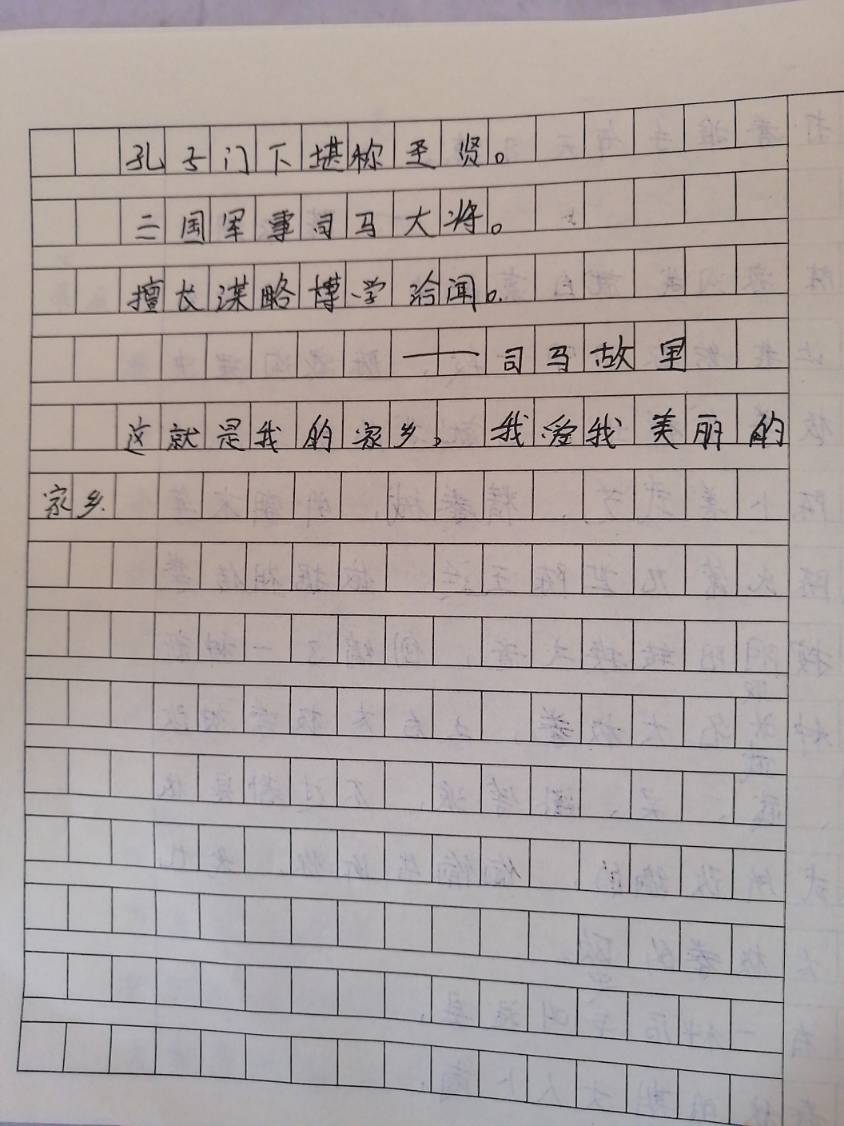 孔子门下堪称至贤。
三国军事司马大将。
擅长谋略博学洽闻。
——司马故里
这就是我的家乡。我爱我美丽的
家乡.